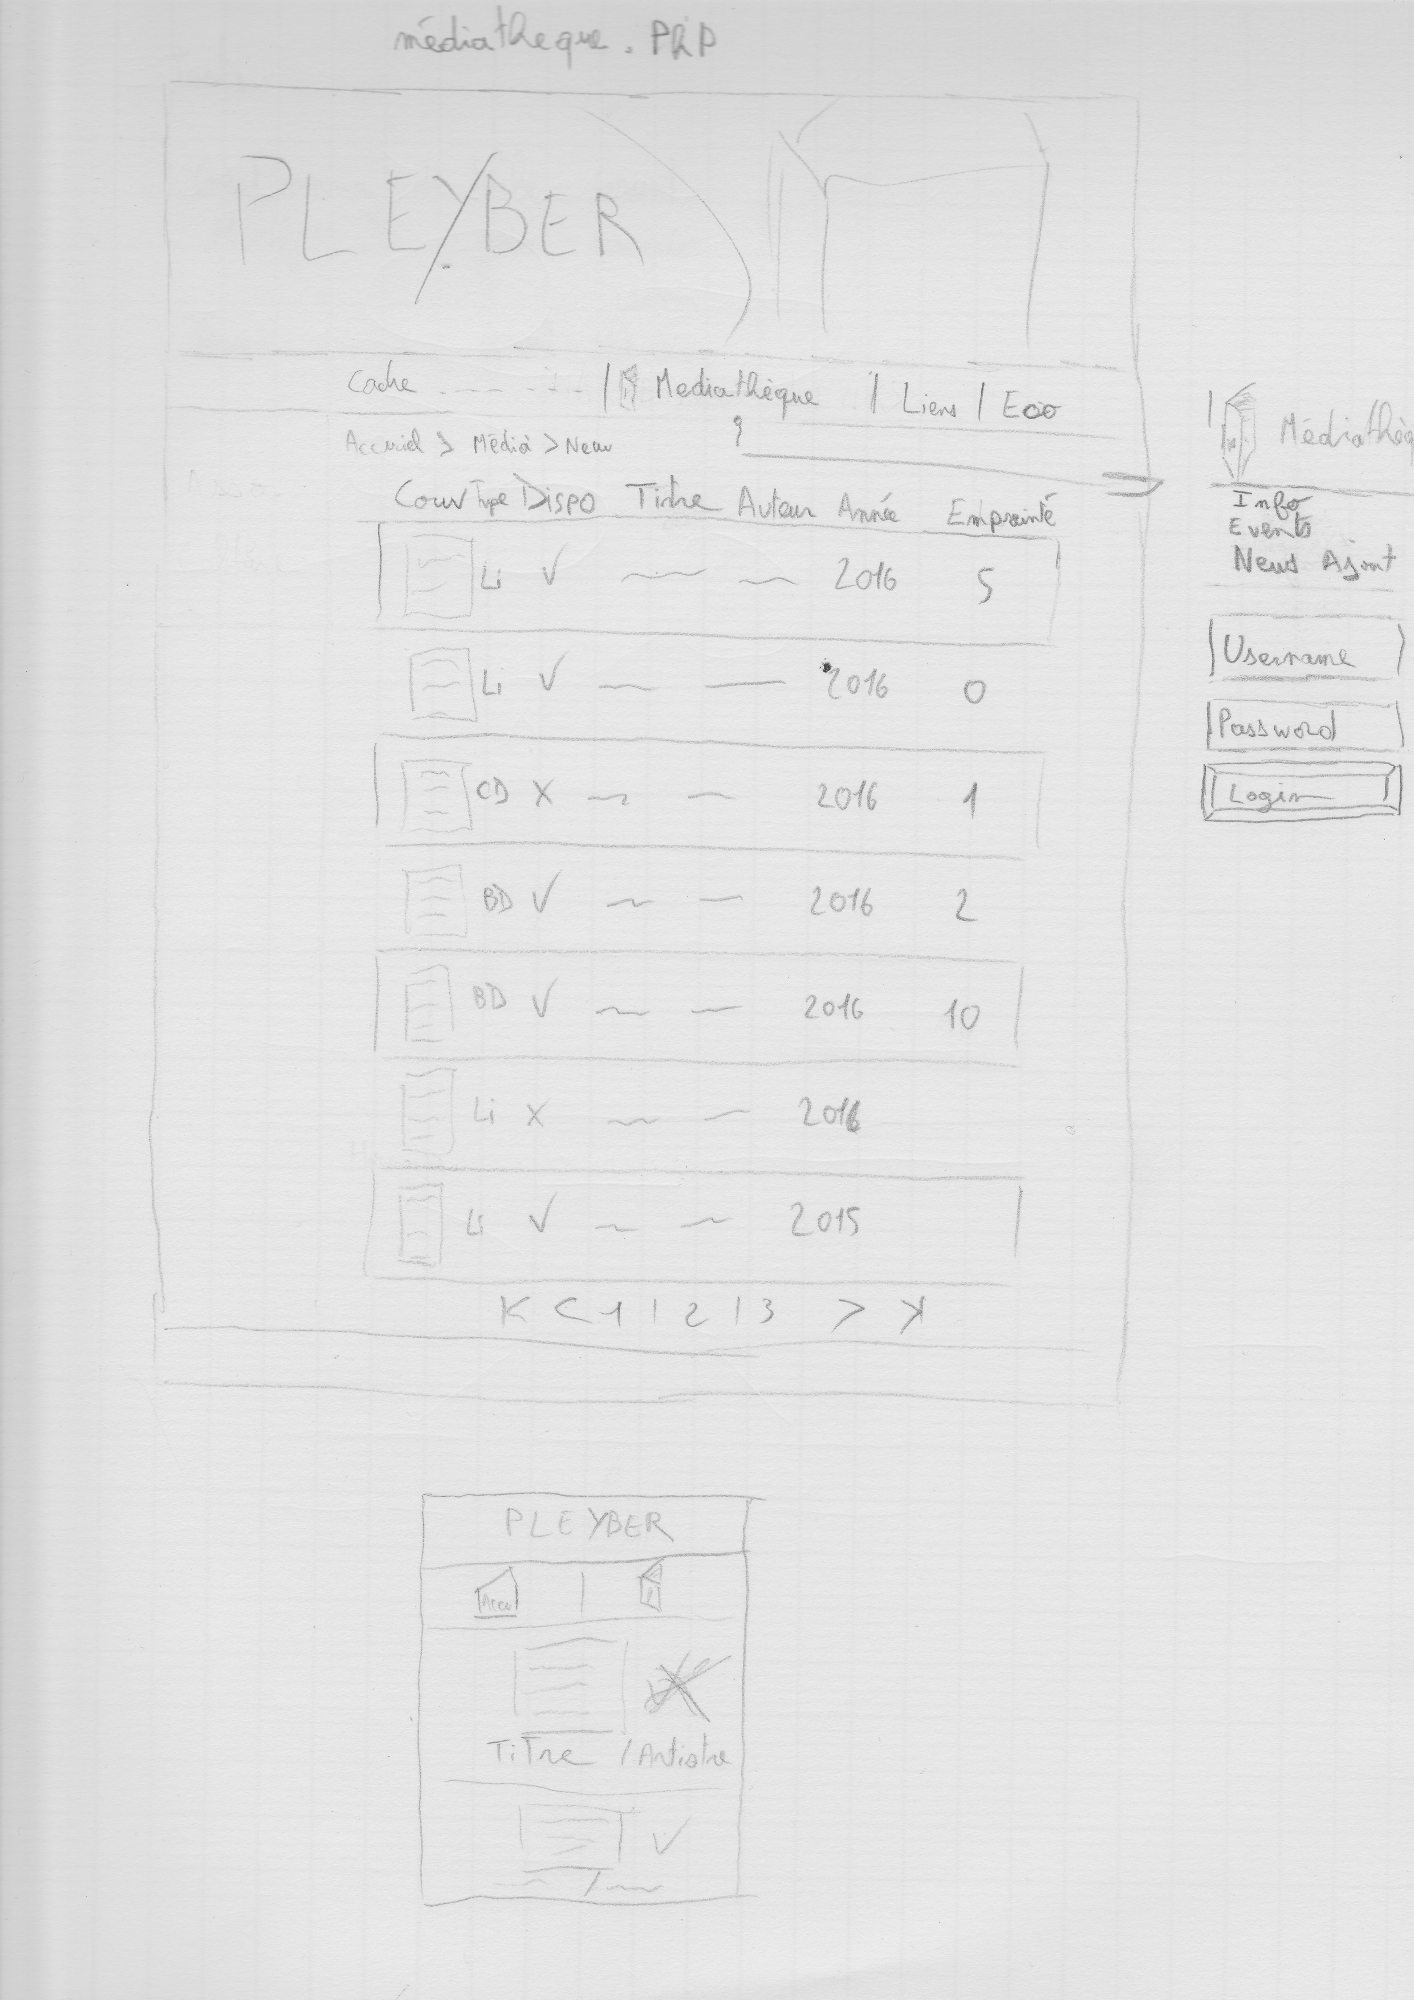 médiatheque.PhP
PLEYBER
Cache | Mediathèque | Liens |
Accueil > Média > New
Couv Type Dispo Titre Auteur Année Emprainté
Li ✓ 2016 5
Li ✓ 2016 0
CD X 2016 1
BD ✓ 2016 2
BD ✓ 2016 10
Li X 2016
Li ✓ 2015
K < 1 | 2 | 3 > X
| Médiathèq
Info
Events
News Ajout
Username
Password
Login
PLEYBER
Accu |
Titre / Artistre
✓
/